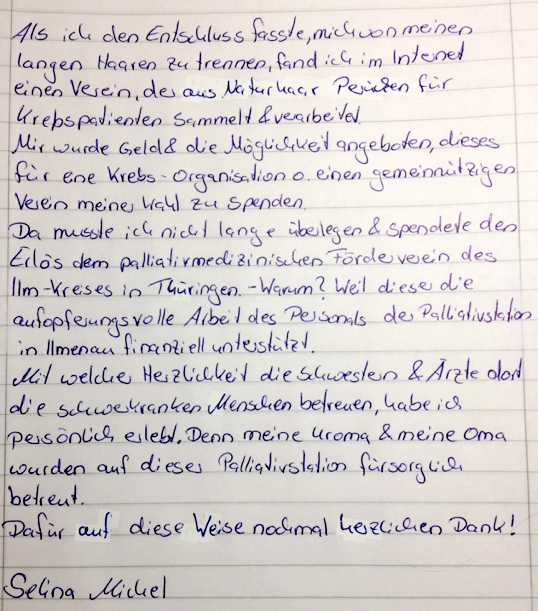 Als ich den Entschluss fasste, mich von meinen
langen Haaren zu trennen, fand ich im Internet
einen Verein, der aus Naturhaar Perücken für
Krebspatienten sammelt & verarbeitet.
Mir wurde Geld & die Möglichkeit angeboten, dieses
für eine Krebs-Organisation o. einen gemeinnützigen
Verein meiner Wahl zu spenden.
Da musste ich nicht lange überlegen & spendete den
Erlös dem palliativmedizinischen Förderverein des
Ilm-Kreises in Thüringen. - Warum? Weil dieser die
aufopferungsvolle Arbeit des Personals der Palliativstation
in Ilmenau finanziell unterstützt.
Mit welcher Herzlichkeit die Schwestern & Ärzte dort
die schwerkranken Menschen betreuen, habe ich
persönlich erlebt. Denn meine Uroma & meine Oma
wurden auf dieser Palliativstation fürsorglich
betreut.
Dafür auf diese Weise nochmal herzlichen Dank!
Selina Michel